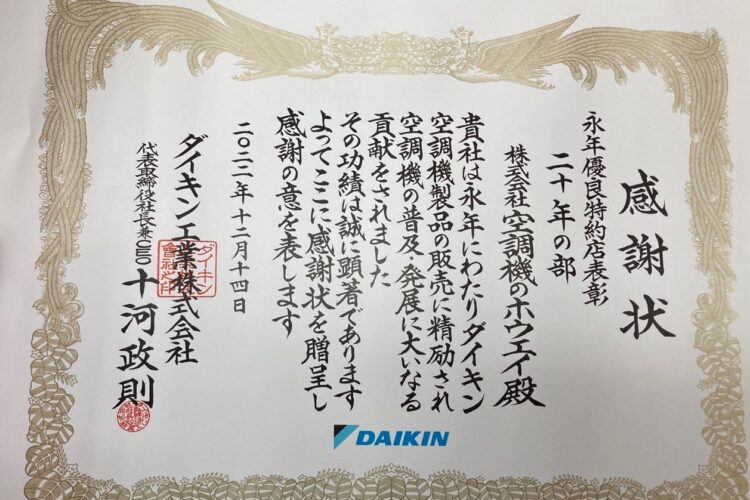 感謝状
永年優良特約店表彰
二十年の部
株式会社空調機のホウエイ殿
貴社は永年にわたりダイキン
空調機製品の販売に精励され
空調機の普及・発展に大いなる
貢献をされました
その功績は誠に顕著であります
よってここに感謝状を贈呈し
感謝の意を表します
二〇二二年十二月十四日
ダイキン工業株式会社
代表取締役社長兼CEO 十河政則
DAIKIN